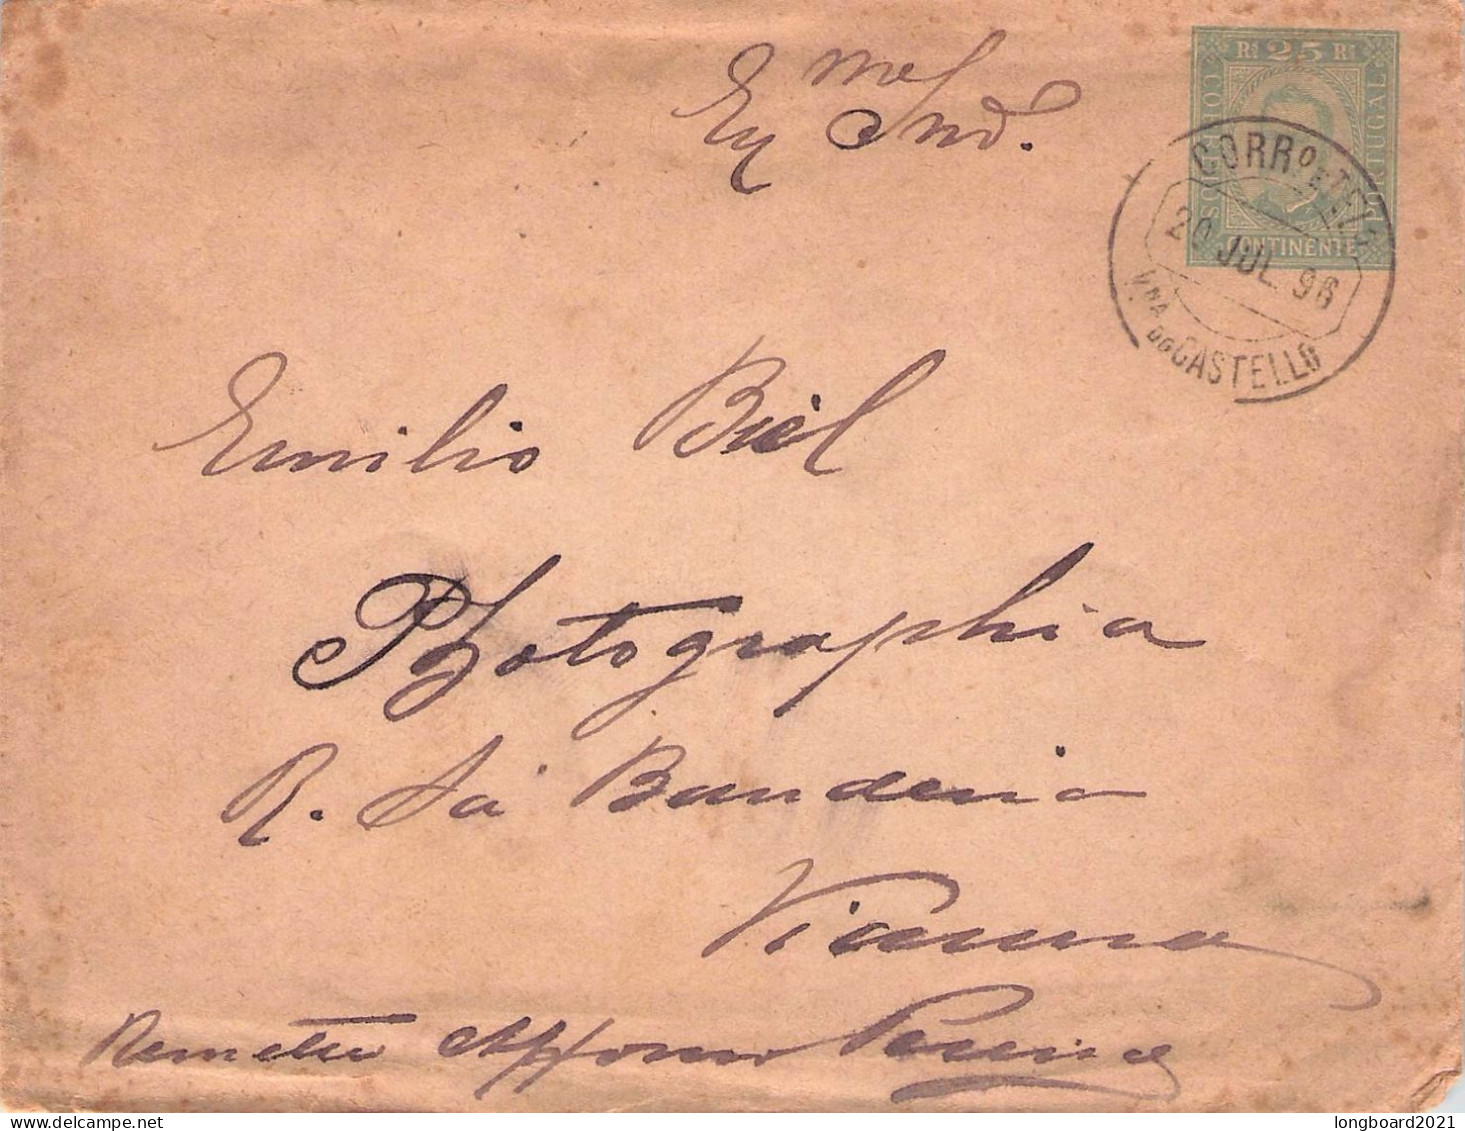 Rs 25 Rs
PORTUGAL
CONTINENTE
CORRO E TELO
20 JUL. 96
VNA DO CASTELLO
Exmo Snr.
Emilio Biel
Photographia
R. Sá Bandeira
Vianna
Remette Affonso Pereira
longboard2021